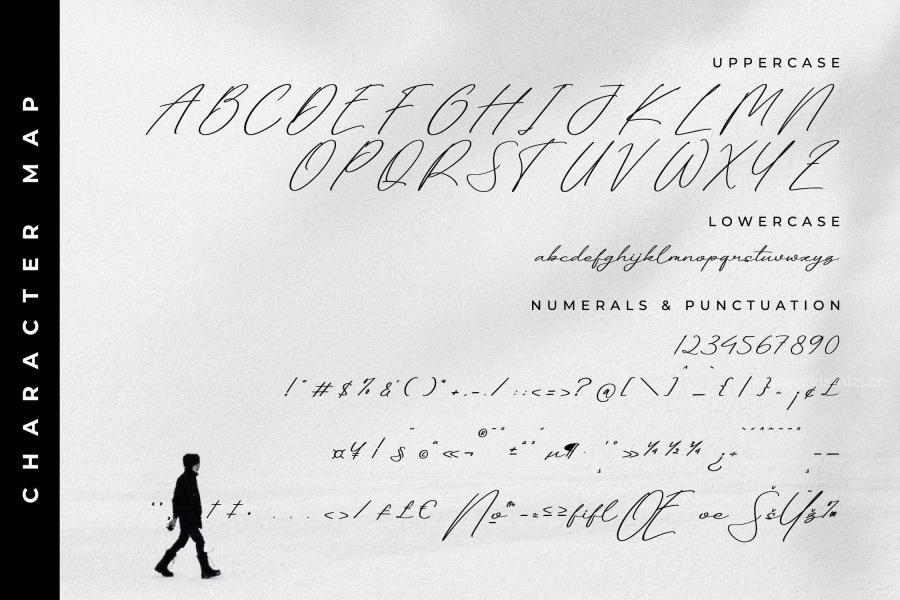 CHARACTER MAP
UPPERCASE
ABCDEFGHIJKLMN
OPQRSTUVWXYZ
LOWERCASE
abcdefghijklmnopqrstuvwxyz
NUMERALS & PUNCTUATION
1234567890
!"#$%&'()*+,-./:;<=>?@[\]^_`{|}~¡¢£
¤¥¦§¨©ª«¬®¯°±²³´µ¶·¸¹º»¼½¾¿
†‡•...‹›⁄₣₤€ №™−≈≤≥fifl Œ œ Šš Žž‰